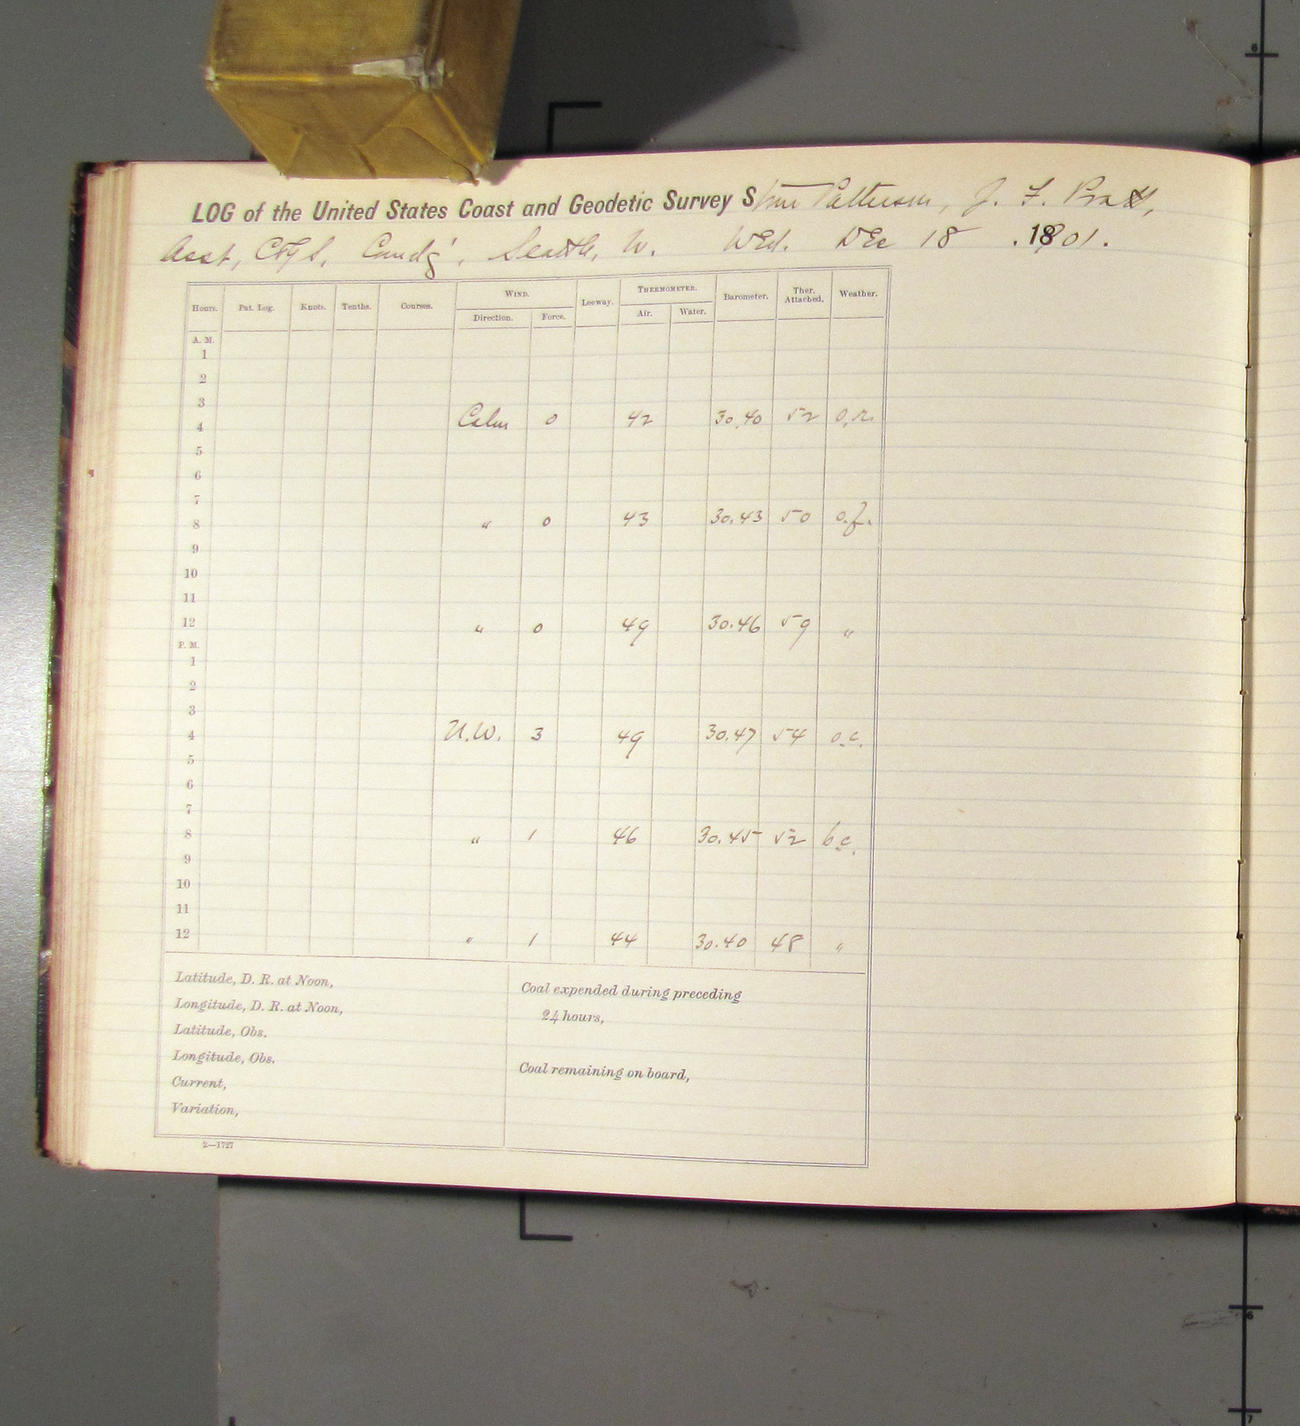 LOG of the United States Coast and Geodetic Survey Stmr Patterson, J. F. Pratt,
Asst, C&GS, Comdg', Seattle, W. Wed. Dec 18 .1901.
Hours. Pat. Log. Knots. Tenths. Courses. WIND. Leeway. THERMOMETER. Barometer. Ther. Attached. Weather.
Direction. Force. Air. Water.
A. M.
1
2
3
4 Calm 0 42 30.40 52 o,r.
5
6
7
8 " 0 43 30.43 50 o.f.
9
10
11
12 " 0 49 30.46 59 "
P. M.
1
2
3
4 N.W. 3 49 30.47 54 o.c.
5
6
7
8 " 1 46 30.45 52 b.c.
9
10
11
12 " 1 44 30.40 48 "
Latitude, D. R. at Noon,
Longitude, D. R. at Noon,
Latitude, Obs.
Longitude, Obs.
Current,
Variation,
Coal expended during preceding
24 hours,
Coal remaining on board,
2—1727
6
6
7